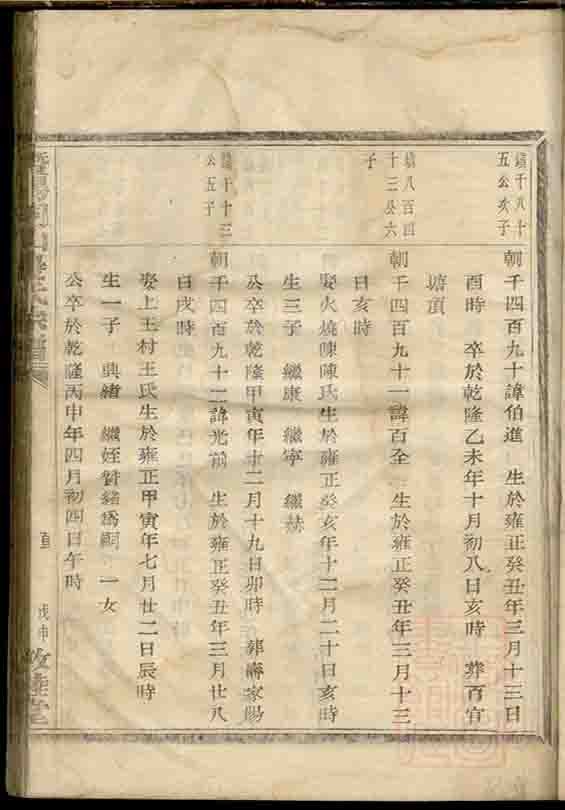 鎮千八十
五公次子
朝千四百九十諱伯進 生於雍正癸丑年三月十三日
酉時 卒於乾隆乙未年十月初八日亥時 葬百官
塘頂
鎮八百四
十三公六
子
朝千四百九十一諱百全 生於雍正癸丑年三月十三
日亥時
娶火燒陳陳氏生於雍正癸亥年十二月二十日亥時
生三子 繼康 繼寧 繼赫
公卒於乾隆甲寅年十二月十九日卯時 葬壽家陽
鎮千十三
公五子
朝千四百九十二諱光前 生於雍正癸丑年三月廿八
日戌時
娶上王村王氏生於雍正甲寅年七月廿二日辰時
生一子 典緒 繼姪贊緒爲嗣 一女
公卒於乾隆丙申年四月初四日午時
氏宗譜
戊申
敦睦堂